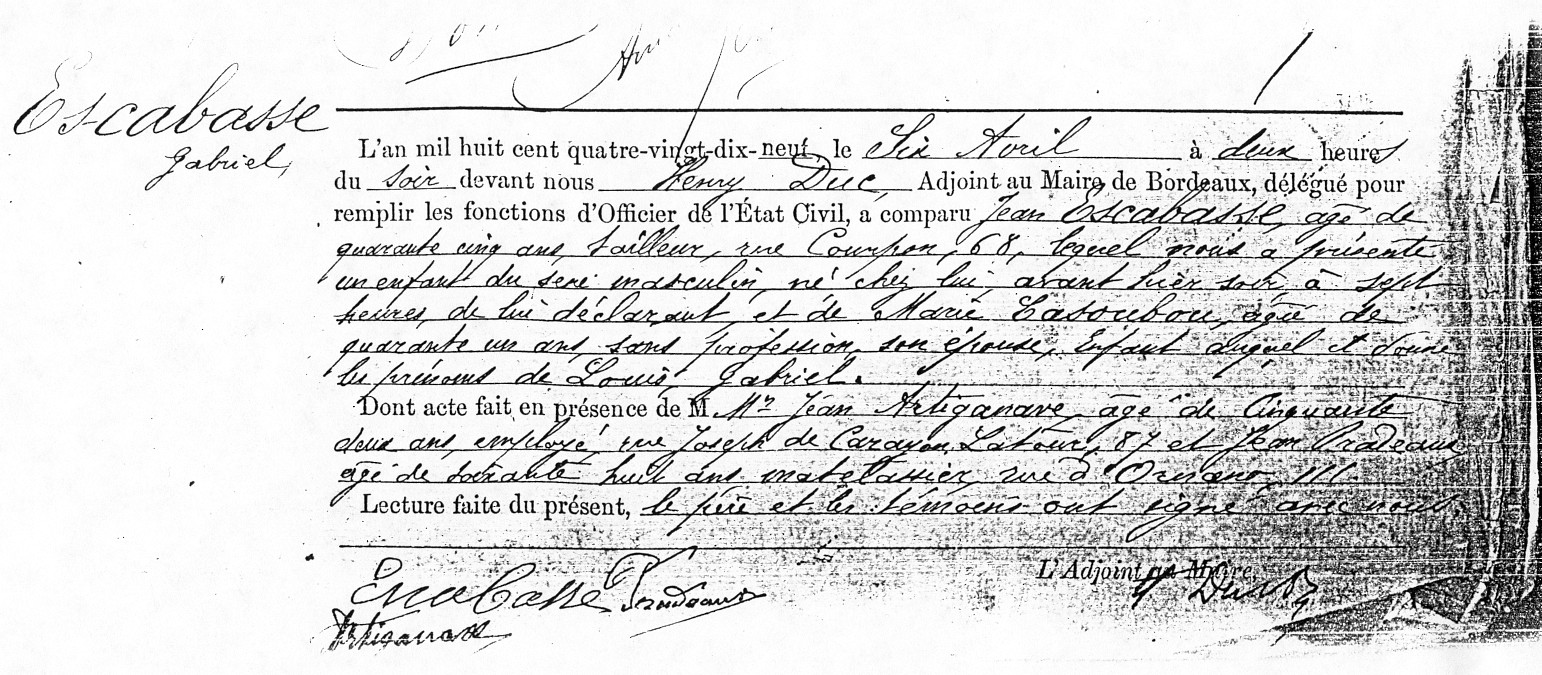 Escabasse
Gabriel,
L'an mil huit cent quatre-vingt-dix-neuf, le Six Avril à deux heures
du soir devant nous Henry Duc, Adjoint au Maire de Bordeaux, délégué pour
remplir les fonctions d'Officier de l'État Civil, a comparu Jean Escabasse, agé de
quarante cinq ans, tailleur, rue Courpon, 68, lequel nous a présenté
un enfant du sexe masculin, né chez lui, avant hier soir, à sept
heures, de lui déclarant, et de Marie Lasoubou, agée de
quarante un ans, sans profession, son épouse, Enfant auquel il donne
les prénoms de Louis Gabriel.
Dont acte fait en présence de M. Mr Jean Artiganave, âgé de Cinquante
deux ans, employé, rue Joseph de Carayon Latour, 87 et Jean Pradeaux,
âgé de soixante huit ans, matelassier, rue d'Ornano, 111.
Lecture faite du présent, le père et les témoins ont signé avec nous
L'Adjoint au Maire,
Escabasse Pradeaux
Artiganave